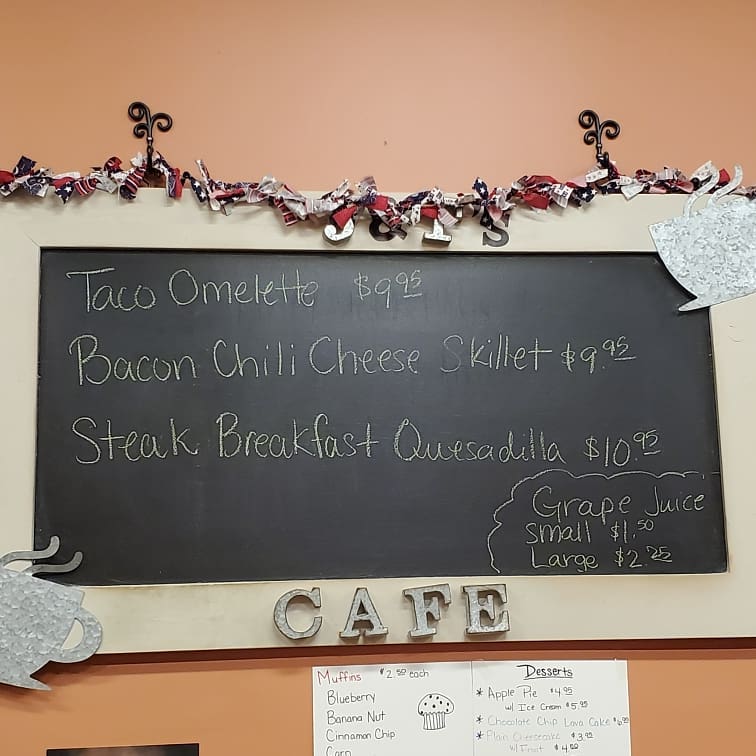 J&T'S
Taco Omelette $9.95
Bacon Chili Cheese Skillet $9.95
Steak Breakfast Quesadilla $10.95
Grape Juice
Small $1.50
Large $2.25
CAFE
Muffins $2.50 each
Blueberry
Banana Nut
Cinnamon Chip
Corn
Desserts
* Apple Pie $4.95
w/ Ice Cream $5.95
* Chocolate Chip Lava Cake $6.95
* Plain Cheesecake $3.95
w/ Fruit $4.50